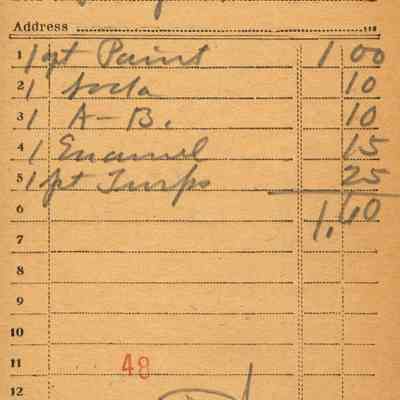 Address
1 1 qt Paint 1 00
2 1 Soda 10
3 1 A-B. 10
4 1 Enamel 15
5 1 pt Turps 25
6 1.60
7
8
9
10
11 48
12